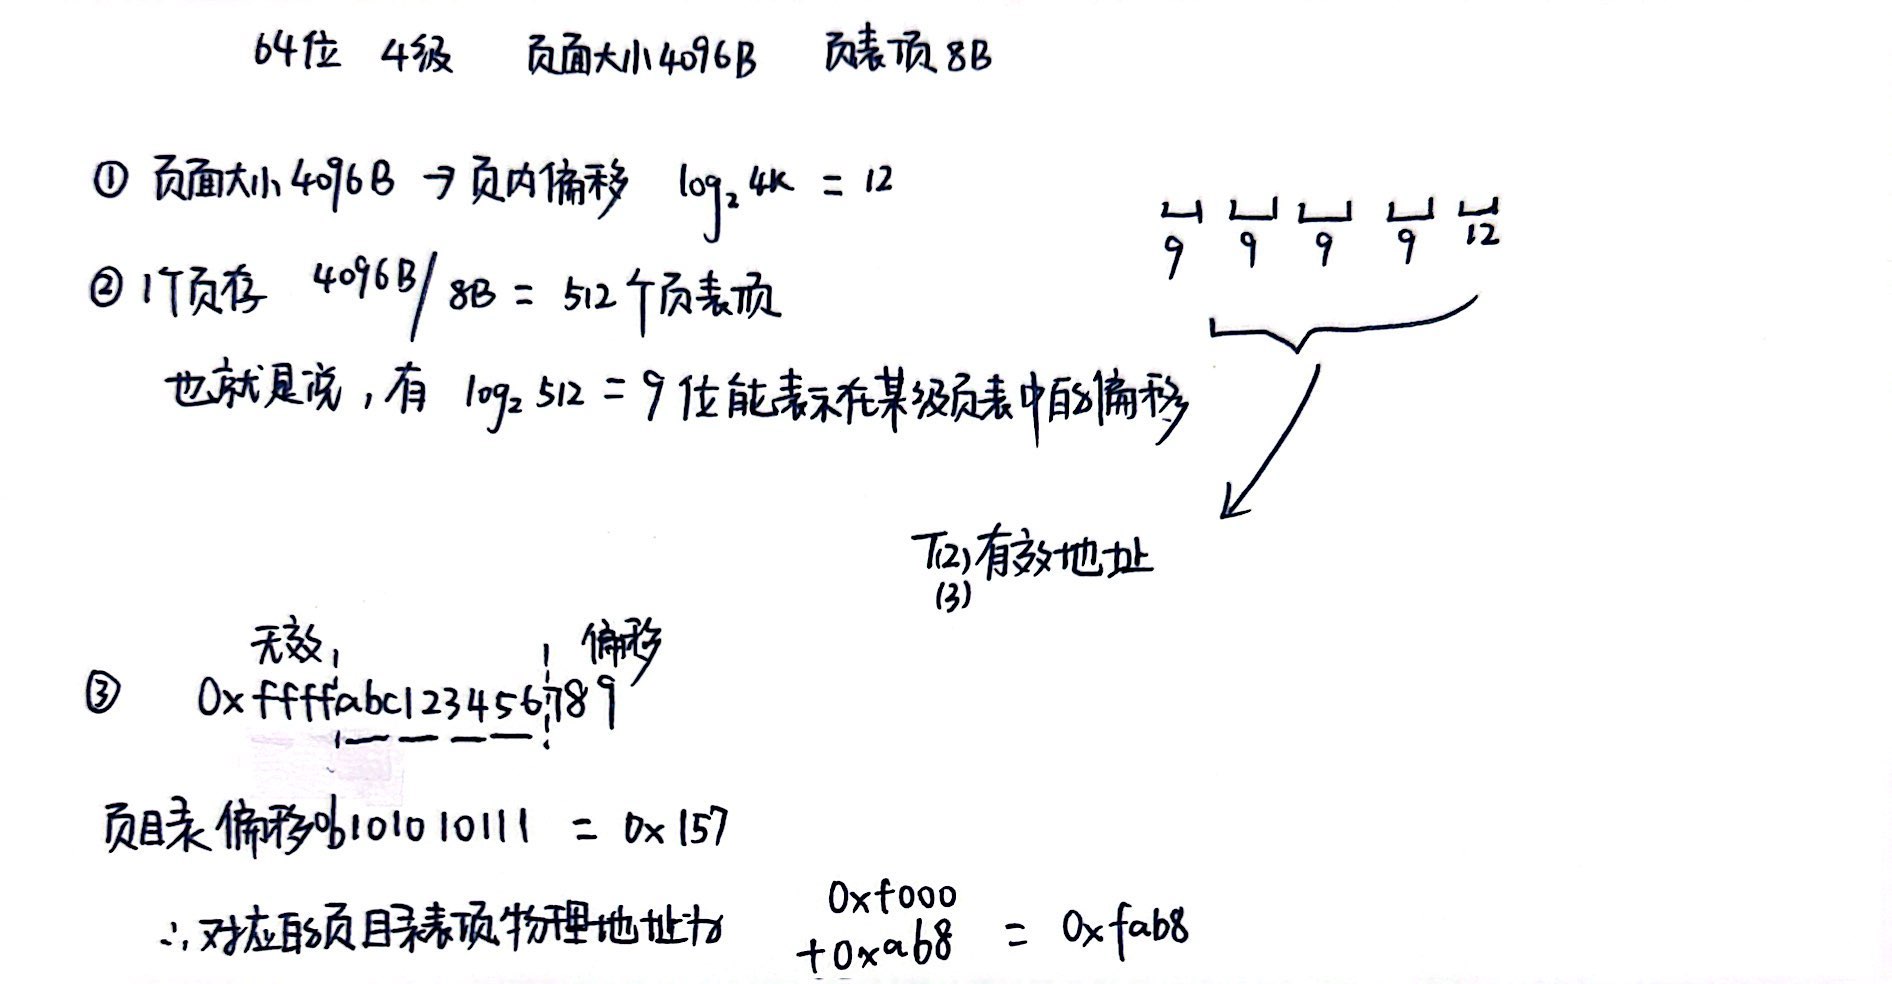 64位 4级 页面大小4096B 页表项8B
① 页面大小4096B → 页内偏移 log₂ 4K = 12
9 9 9 9 12
② 1个页存 4096B/8B = 512个页表项
也就是说，有 log₂ 512 = 9 位能表示在某级页表中的偏移
T(2)有效地址
(3)
无效 偏移
③ 0xffffabc123456789
页目录偏移0b101010111 = 0x157
∴ 对应的页目录表项物理地址为 0xf000
+0xab8 = 0xfab8